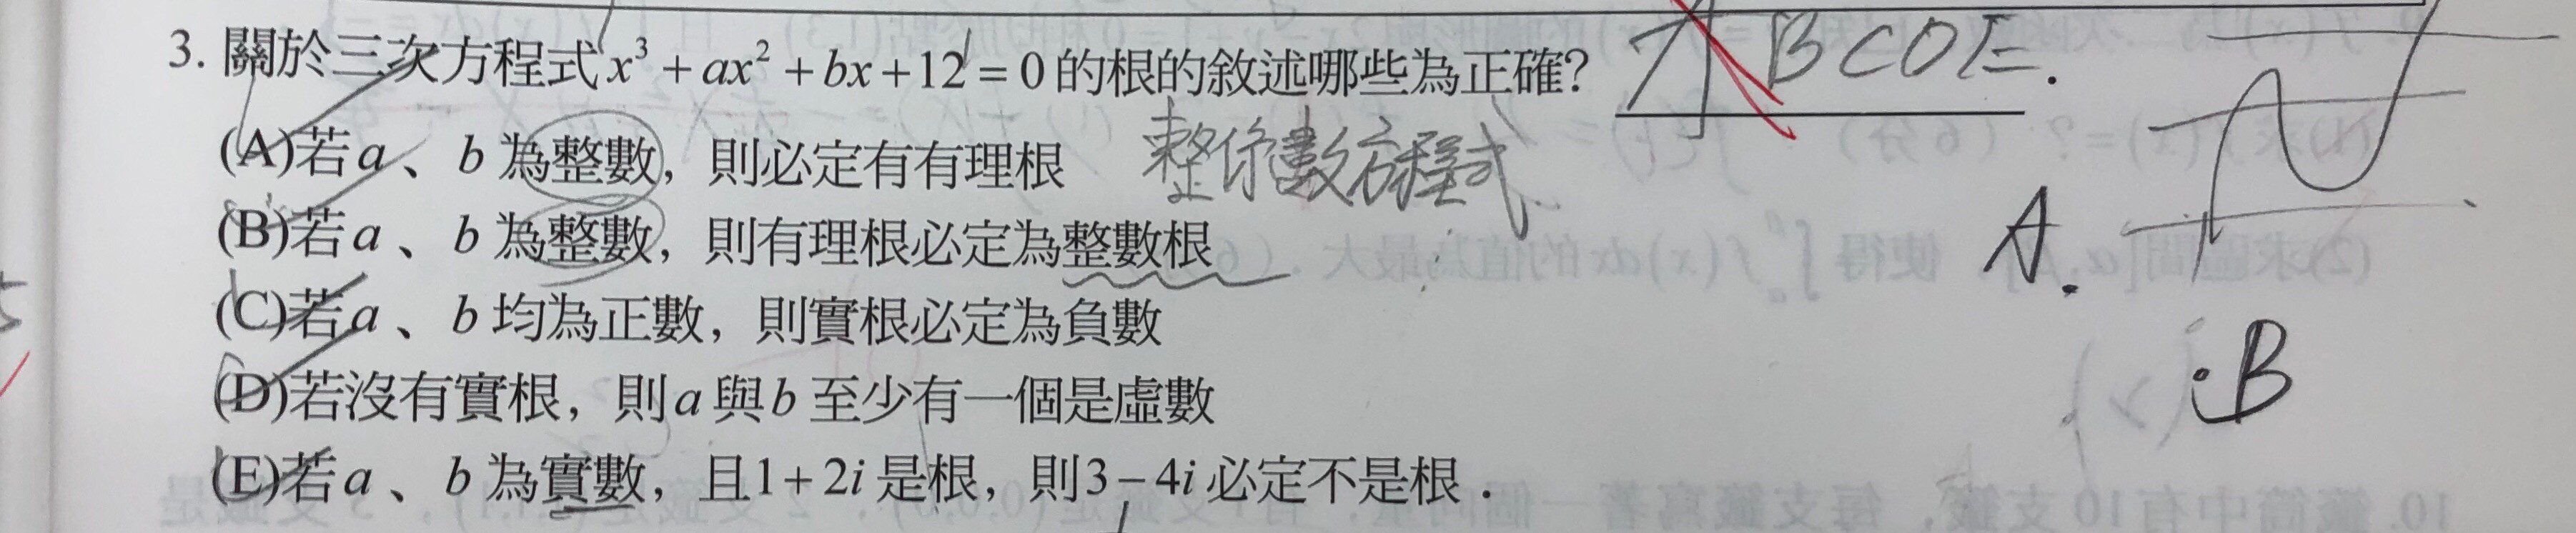 3. 關於三次方程式 x³ + ax² + bx + 12 = 0 的根的敘述哪些為正確? A B C D E .
(A)若 a 、 b 為整數，則必定有有理根 整係數方程式
(B)若 a 、 b 為整數，則有理根必定為整數根
A.
(C)若 a 、 b 均為正數，則實根必定為負數
B
(D)若沒有實根，則 a 與 b 至少有一個是虛數
(E)若 a 、 b 為實數，且 1 + 2i 是根，則 3 − 4i 必定不是根．